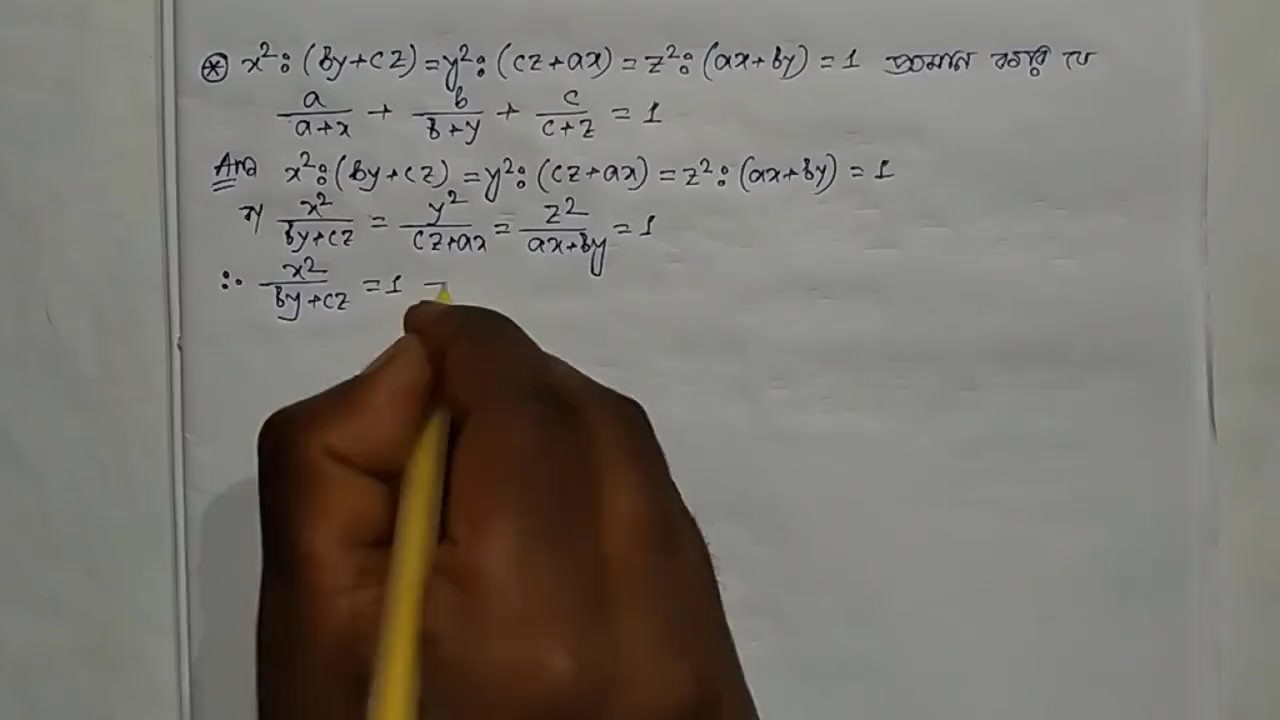 ⊛ x²:(by+cz)=y²:(cz+ax)=z²:(ax+by)=1 প্রমাণ করি যে
a/(a+x) + b/(b+y) + c/(c+z) = 1
Ans x²:(by+cz)=y²:(cz+ax)=z²:(ax+by)=1
বা x²/(by+cz) = y²/(cz+ax) = z²/(ax+by) = 1
∴ x²/(by+cz) = 1 –